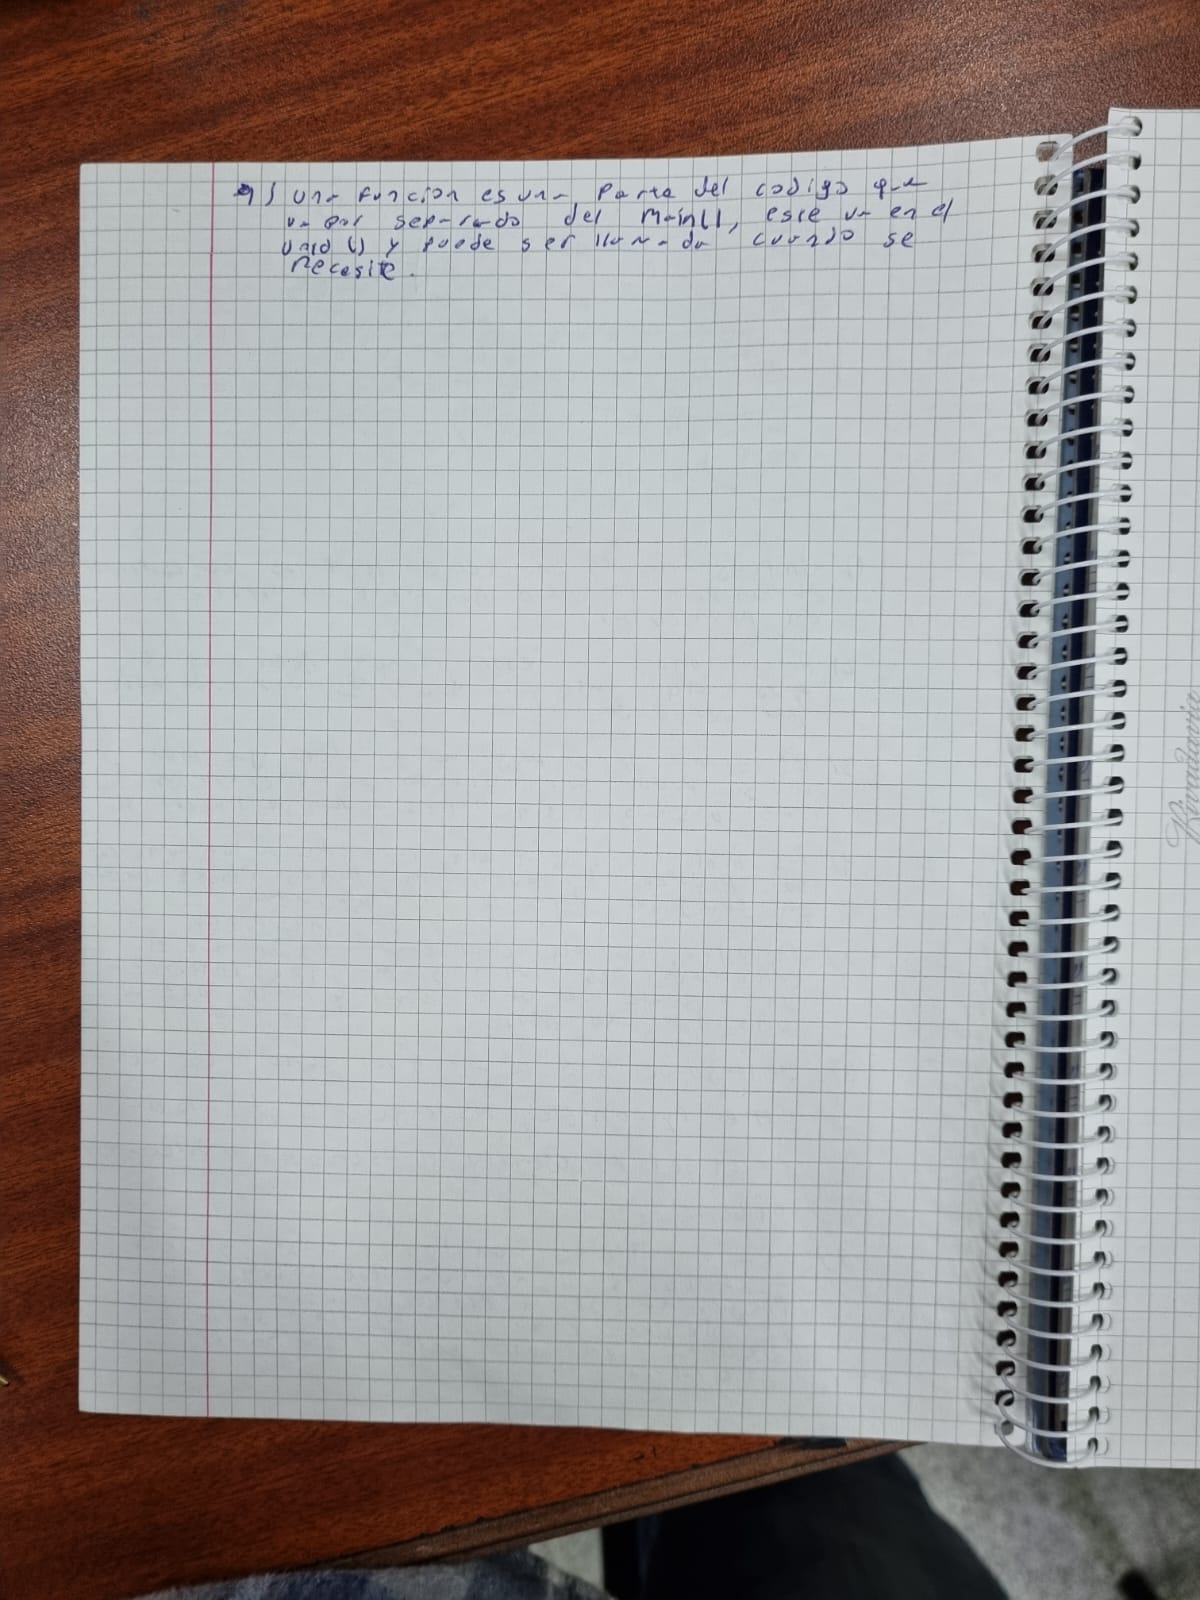 9) una funcion es una parte del codigo que
va por separado del main(), este va en el
void () y puede ser llamada cuando se
necesite.
Rivadavia